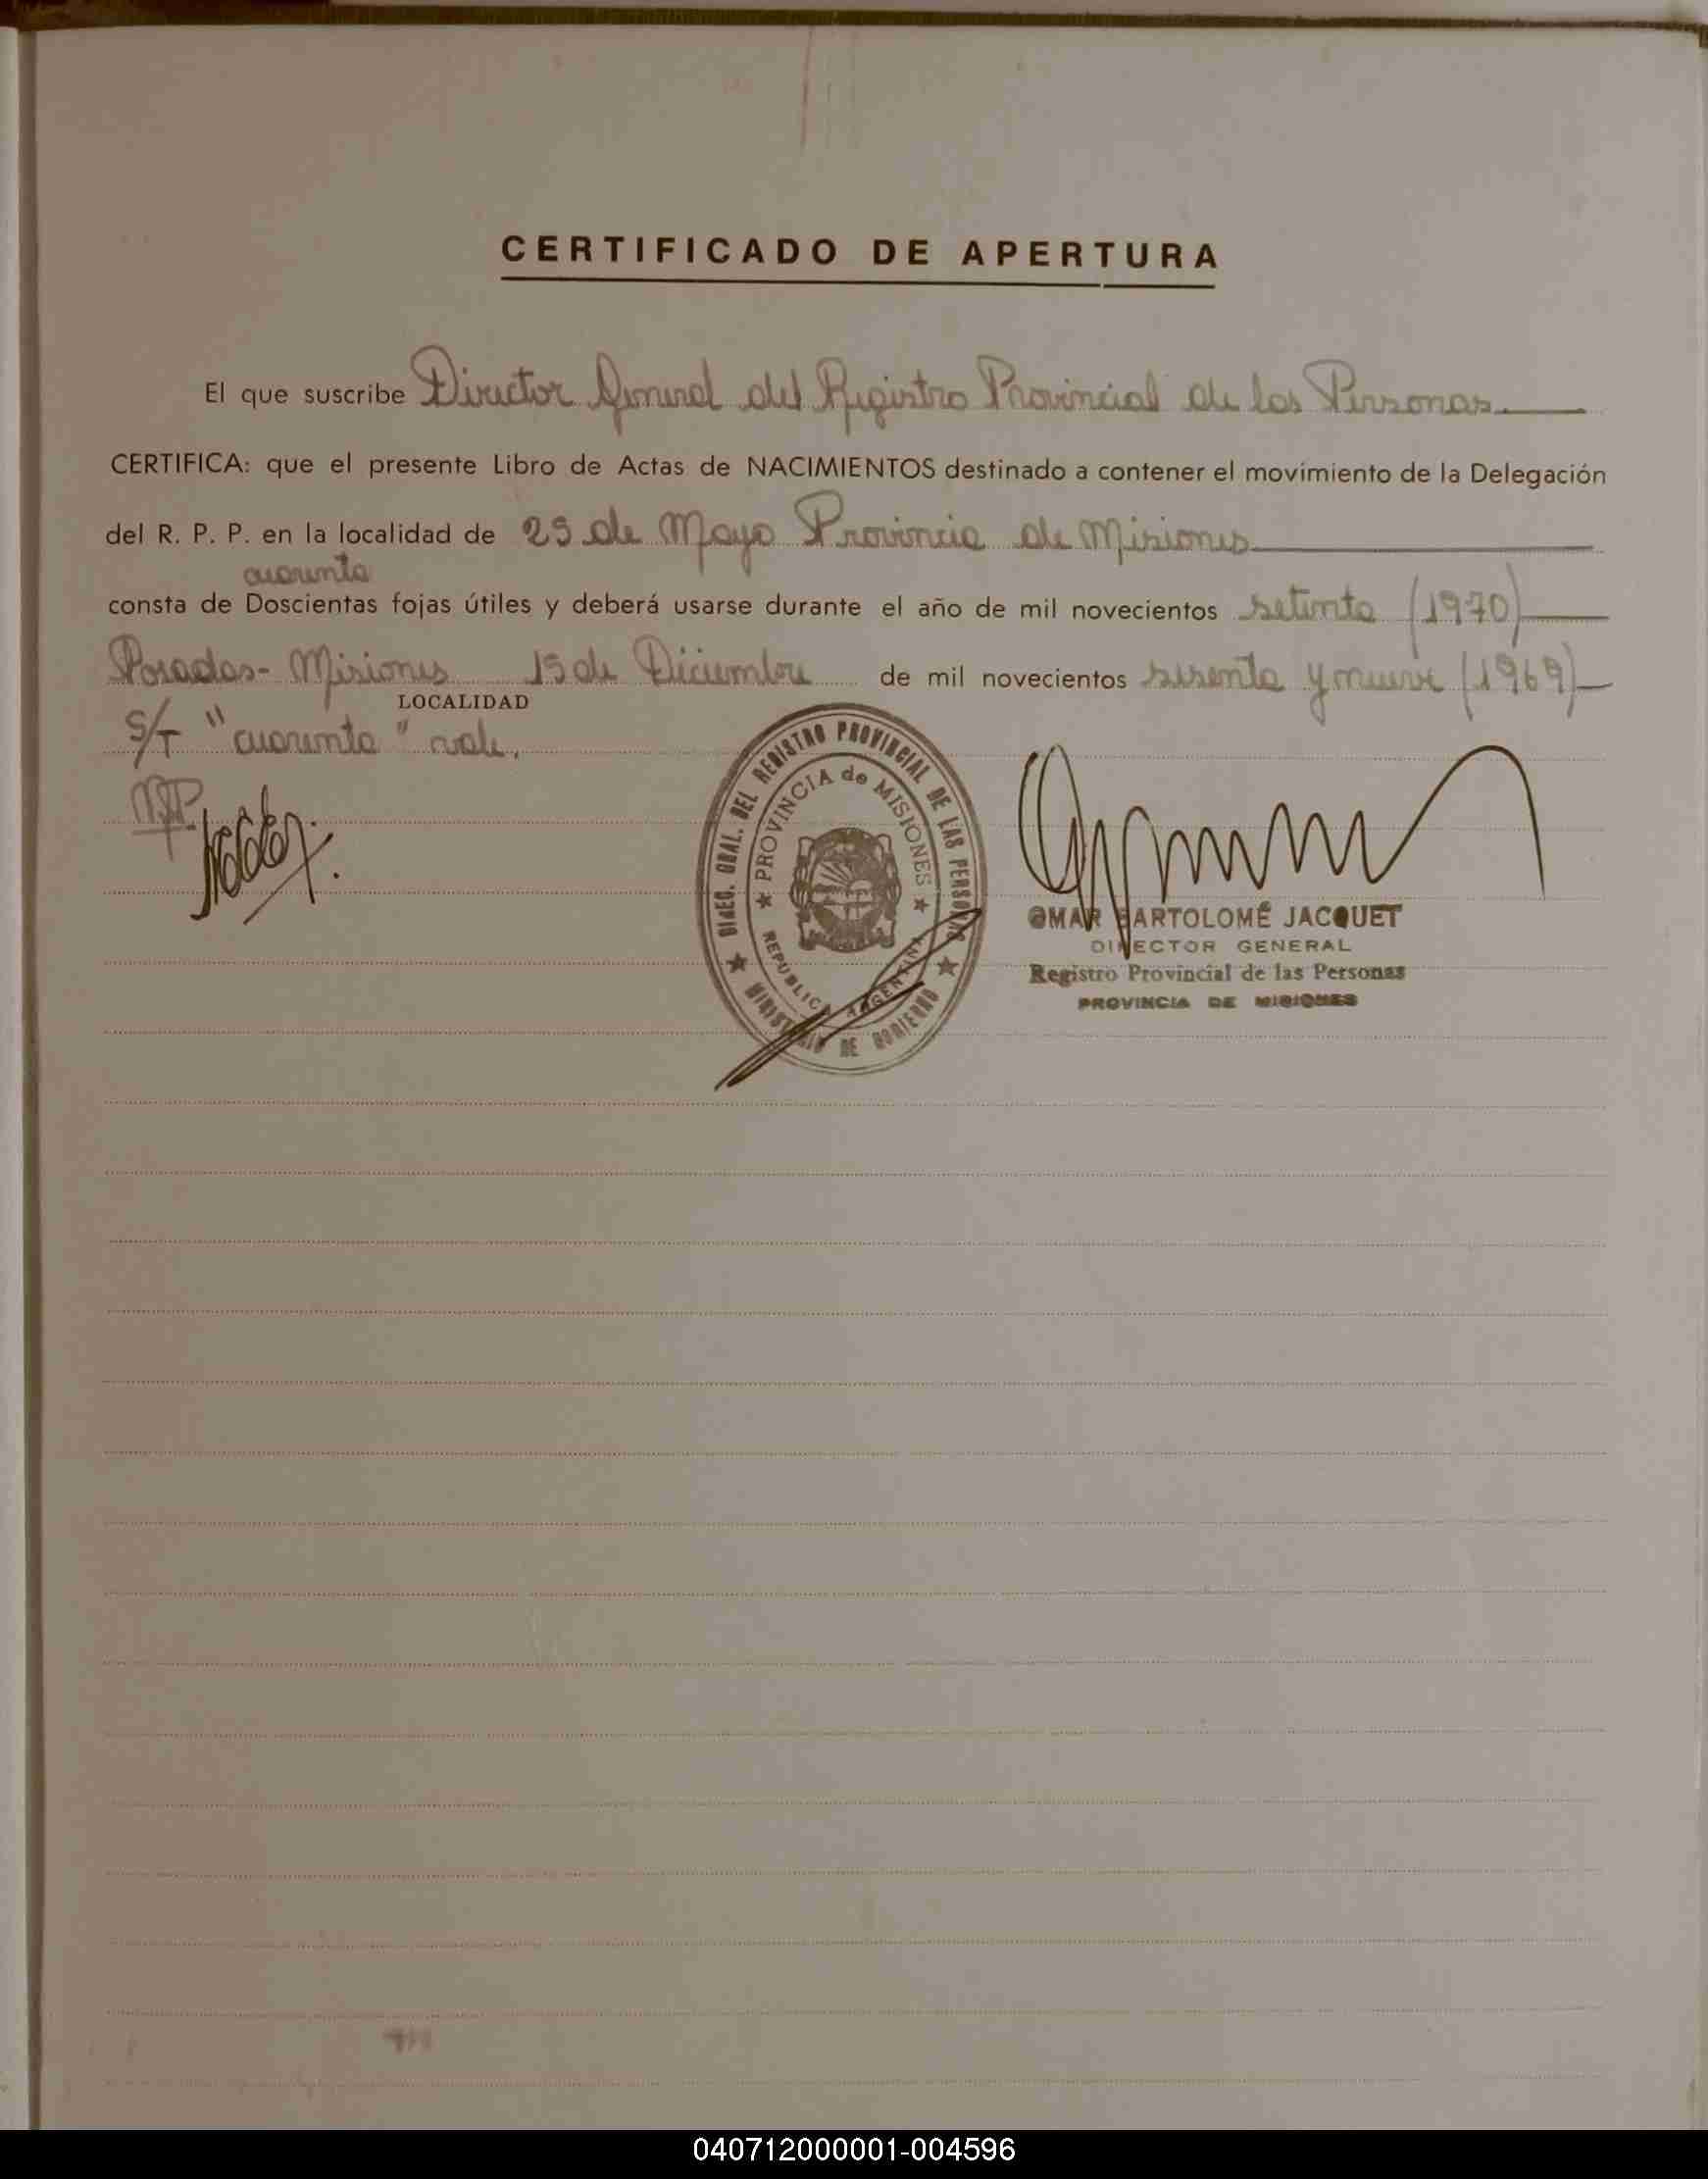 CERTIFICADO DE APERTURA
El que suscribe Director General del Registro Provincial de las Personas.
CERTIFICA: que el presente Libro de Actas de NACIMIENTOS destinado a contener el movimiento de la Delegación
del R. P. P. en la localidad de 25 de Mayo Provincia de Misiones
cuarenta
consta de Doscientas fojas útiles y deberá usarse durante el año de mil novecientos setenta (1970)
Posadas - Misiones 15 de Diciembre de mil novecientos sesenta y nueve (1969)
LOCALIDAD
S/T "cuarenta" vale.
DIREC. GRAL. DEL REGISTRO PROVINCIAL DE LAS PERSONAS
★ MINISTERIO DE GOBIERNO ★
★ PROVINCIA de MISIONES ★
REPUBLICA ARGENTINA
OMAR BARTOLOMÉ JACQUET
DIRECTOR GENERAL
Registro Provincial de las Personas
PROVINCIA DE MISIONES
040712000001-004596